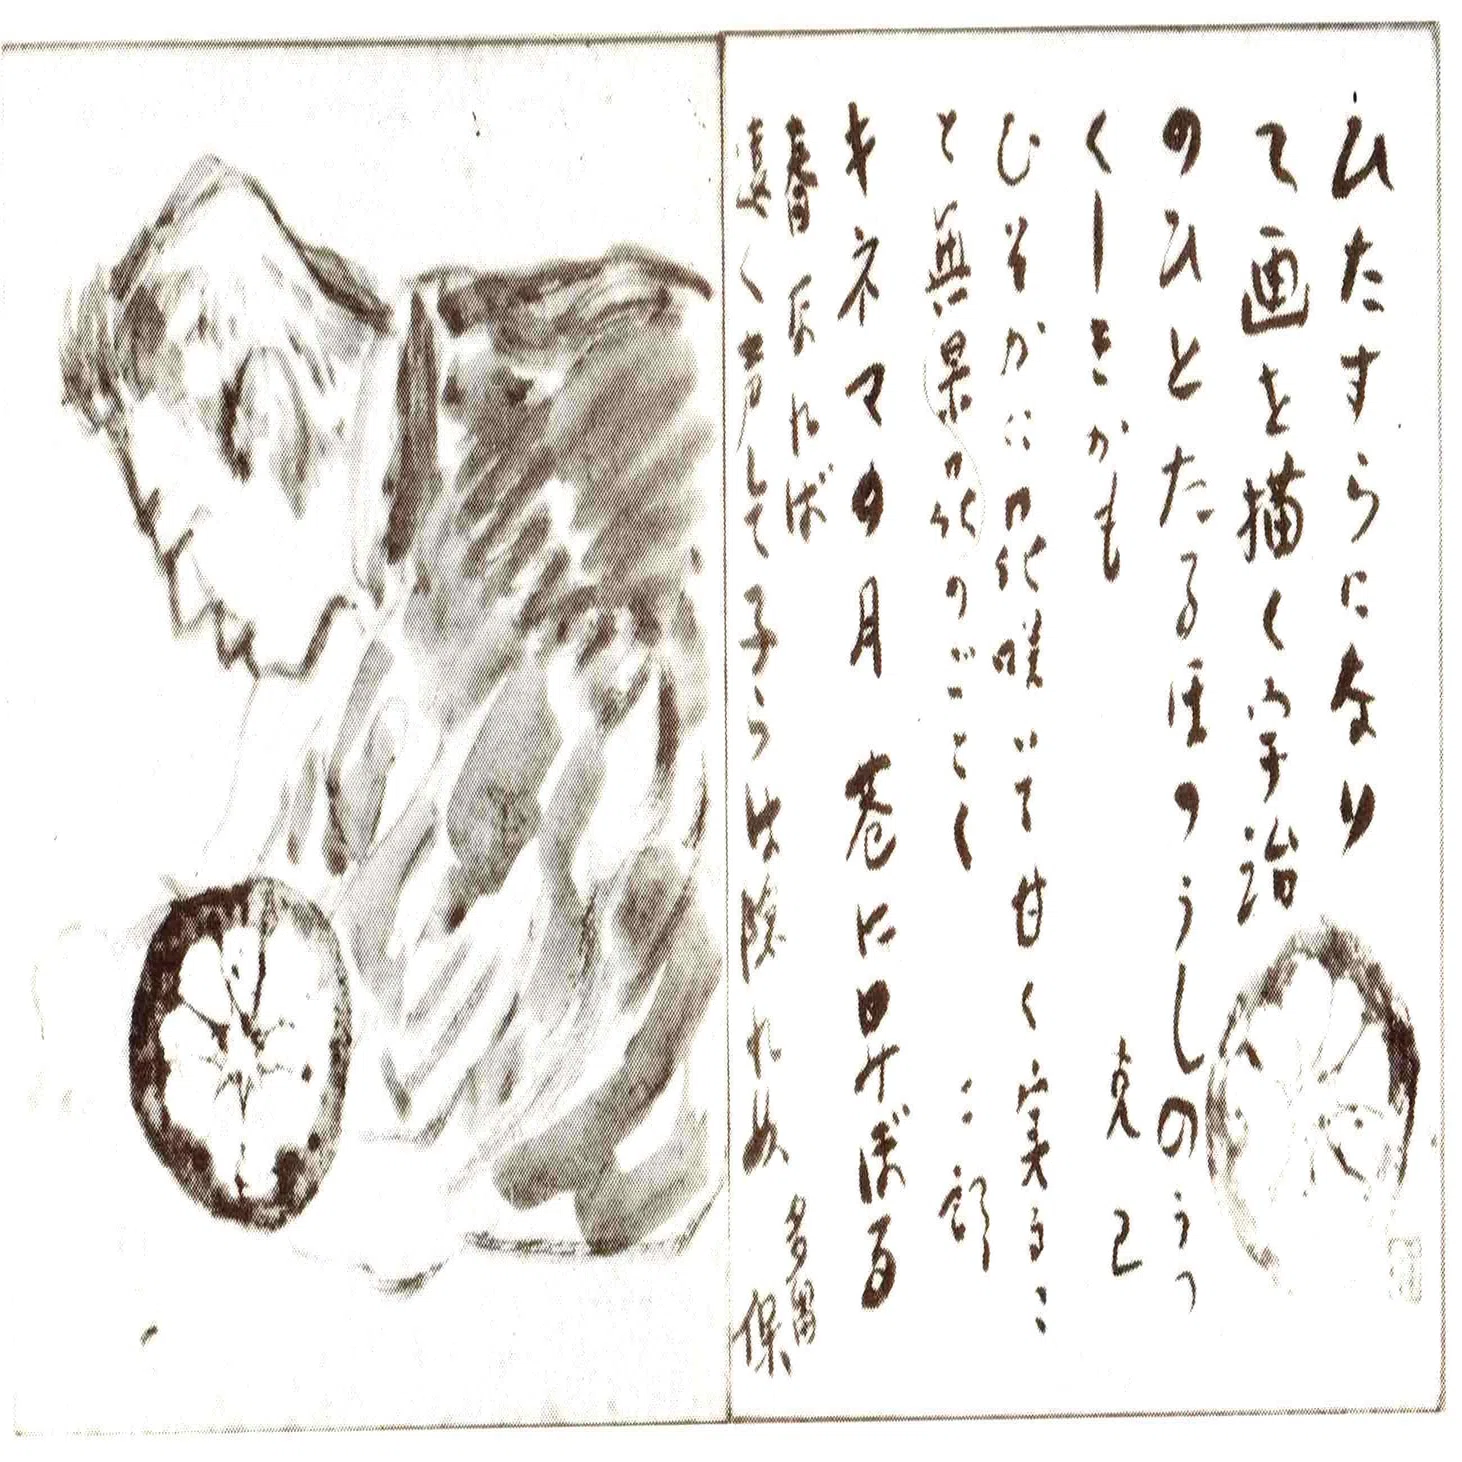 ひたすらになり
て画を描く宇治
のひとたるほのうしのうつ
くしきかも
克己
ひそかに花咲いて甘く実るこ
と無果花のごとく 二郎
キネマの月 巷に昇ぼる
春なれば
遠く声して子らは隠れぬ
多畄
保